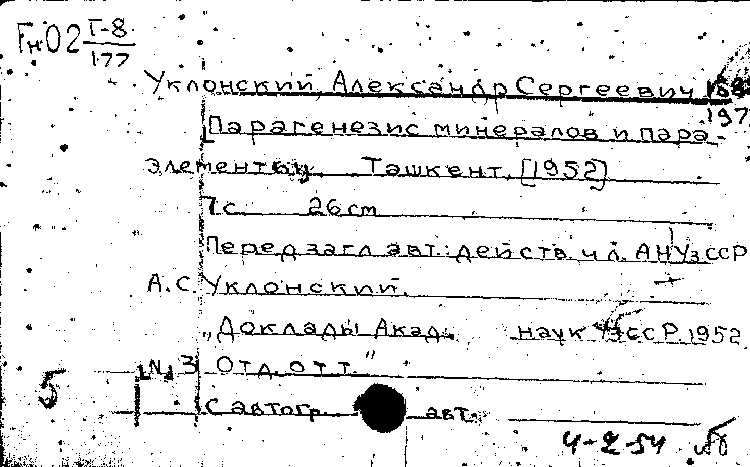 Гн02 Г-8
177
Уклонский, Александр Сергеевич 188
197
Парагенезис минералов и пара-
элементы. Ташкент, [1952]
7 с. 26 cm
Перед загл. авт.: действ. чл. АН УзССР
А.С. Уклонский.
„Доклады Акад. наук УзССР. 1952.
№ 3 Отд. отт."
5
С автогр. авт.
4-2-54